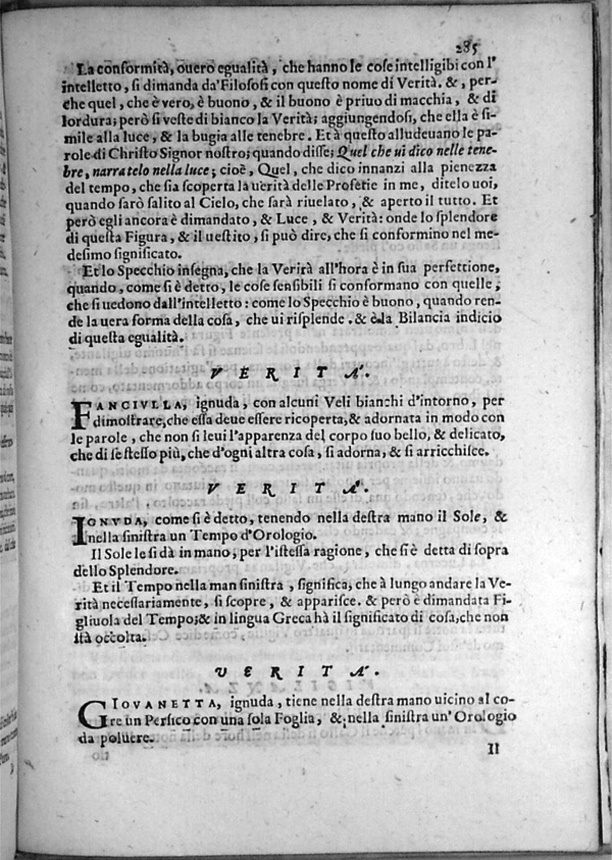 285
La conformità, ouero egualità, che hanno le cose intelligibi con l'
intelletto, si dimanda da'Filosofi con questo nome di Verità. &, per-
che quel, che è vero, è buono, & il buono è priuo di macchia, & di
lordura; però si veste di bianco la Verità; aggiungendosi, che ella è si-
mile alla luce, & la bugia alle tenebre. Et à questo alludeuano le pa-
role di Christo Signor nostro; quando disse; Quel che ui dico nelle tene-
bre, narratelo nella luce; cioè, Quel, che dico innanzi alla pienezza
del tempo, che sia scoperta la uerità delle Profetie in me, ditelo uoi,
quando sarò salito al Cielo, che sarà riuelato, & aperto il tutto. Et
però egli ancora è dimandato, & Luce, & Verità: onde lo splendore
di questa Figura, & il uestito, si può dire, che si conformino nel me-
desimo significato.
Et lo Specchio insegna, che la Verità all'hora è in sua perfettione,
quando, come si è detto, le cose sensibili si conformano con quelle,
che si uedono dall'intelletto: come lo Specchio è buono, quando ren-
de la uera forma della cosa, che ui risplende. & è la Bilancia indicio
di questa egualità.
VERITA'.
FANCIVLLA, ignuda, con alcuni Veli bianchi d'intorno, per
dimostrare, che essa deue essere ricoperta, & adornata in modo con
le parole, che non si leui l'apparenza del corpo suo bello, & delicato,
che di se stesso più, che d'ogni altra cosa, si adorna, & si arricchisce.
VERITA'.
IGNVDA, come si è detto, tenendo nella destra mano il Sole, &
nella sinistra un Tempo d'Orologio.
Il Sole le si dà in mano, per l'istessa ragione, che si è detta di sopra
dello Splendore.
Et il Tempo nella man sinistra, significa, che à lungo andare la Ve-
rità necessariamente, si scopre, & apparisce. & però è dimandata Fi-
gliuola del Tempo; & in lingua Greca hà il significato di cosa, che non
stà occolta.
VERITA'.
GIOVANETTA, ignuda, tiene nella destra mano uicino al co-
re un Persico con una sola Foglia, & nella sinistra un'Orologio
da poluere.
Il